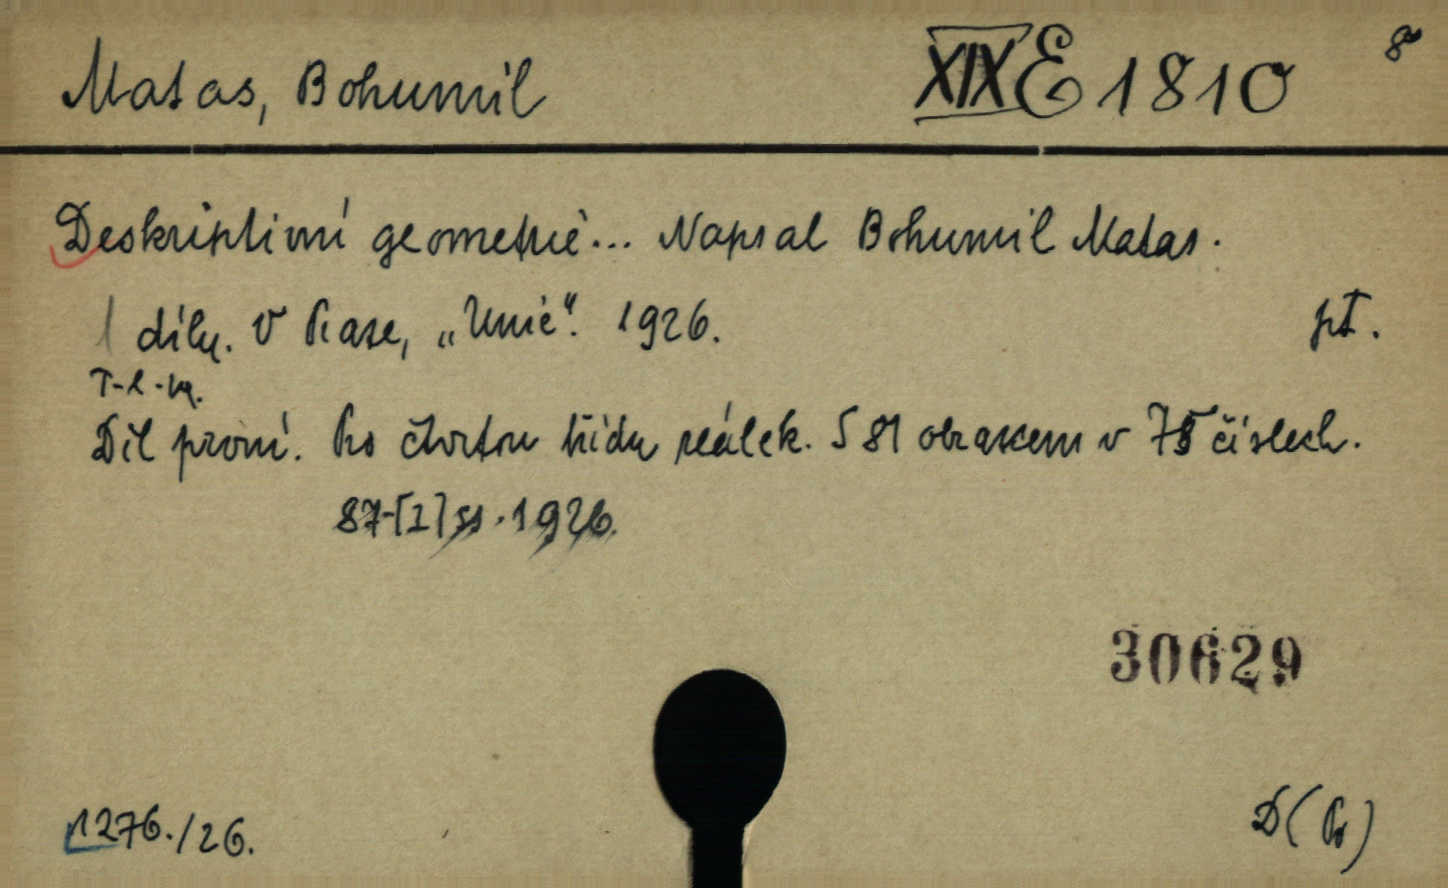 Matas, Bohumil XIX E 1810 8°
Deskriptivní geometrie... Napsal Bohumil Matas.
1 díly. V Praze, „Unie“. 1926. pt.
Díl první. Pro čtvrtou třídu reálek. S 81 obrazcem v 75 číslech.
87-[1] ss. 1926.
30629
1276./26. D (Pr)